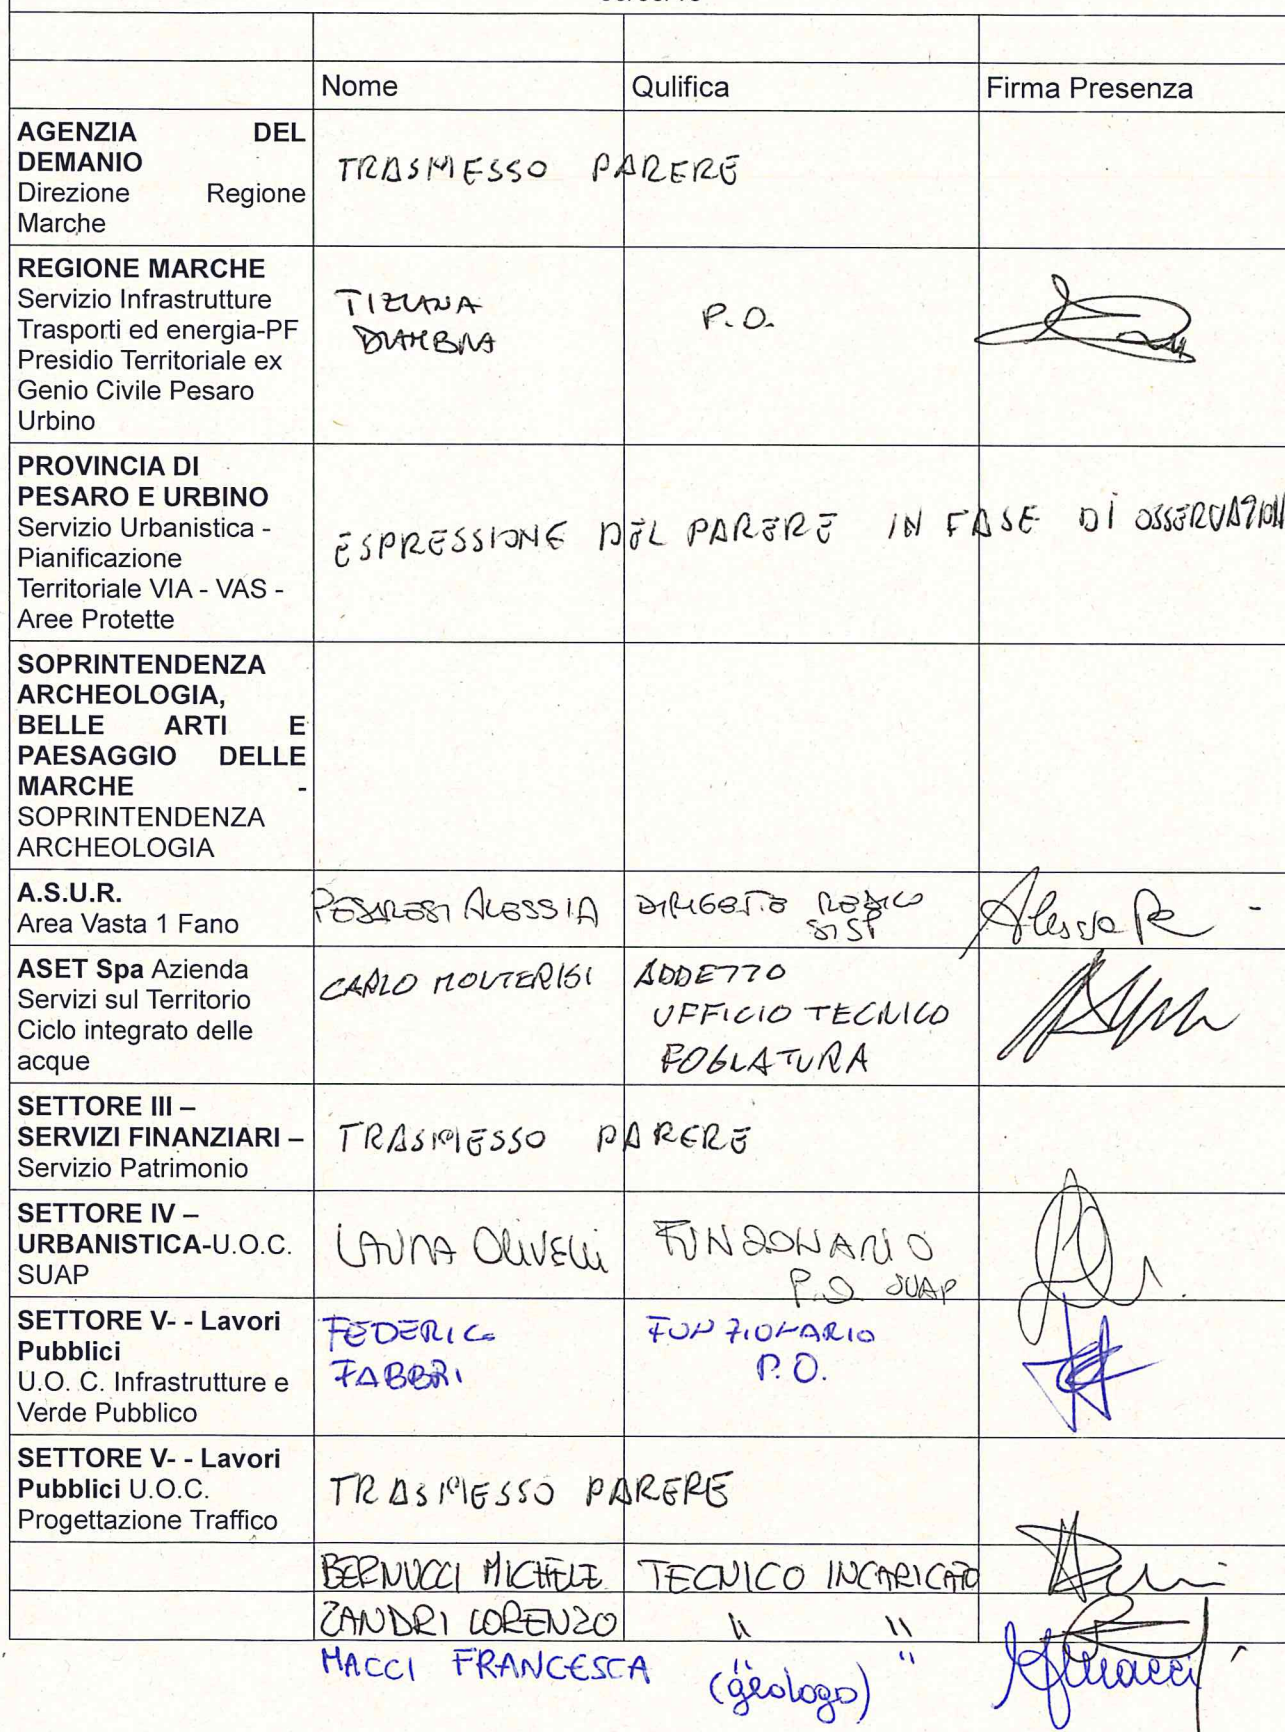 Nome Qulifica Firma Presenza
AGENZIA DEL
DEMANIO
Direzione Regione
Marche
TRASMESSO PARERE
REGIONE MARCHE
Servizio Infrastrutture
Trasporti ed energia-PF
Presidio Territoriale ex
Genio Civile Pesaro
Urbino
TIZIANA
P.O.
PROVINCIA DI
PESARO E URBINO
Servizio Urbanistica -
Pianificazione
Territoriale VIA - VAS -
Aree Protette
ESPRESSIONE DEL PARERE IN FASE DI OSSERVAZIONI
SOPRINTENDENZA
ARCHEOLOGIA,
BELLE ARTI E
PAESAGGIO DELLE
MARCHE -
SOPRINTENDENZA
ARCHEOLOGIA
A.S.U.R.
Area Vasta 1 Fano
PESARESI ALESSIA
DIRIGENTE MEDICO
SISP
Alessia
ASET Spa Azienda
Servizi sul Territorio
Ciclo integrato delle
acque
CARLO MONTERISI
ADDETTO
UFFICIO TECNICO
FOGNATURA
SETTORE III –
SERVIZI FINANZIARI –
Servizio Patrimonio
TRASMESSO PARERE
SETTORE IV –
URBANISTICA-U.O.C.
SUAP
LAURA OLIVELLI
FUNZIONARIO
P.O. SUAP
SETTORE V- - Lavori
Pubblici
U.O. C. Infrastrutture e
Verde Pubblico
FEDERICO
FABBRI
FUNZIONARIO
P.O.
SETTORE V- - Lavori
Pubblici U.O.C.
Progettazione Traffico
TRASMESSO PARERE
BERNUCCI MICHELE TECNICO INCARICATO
ZANDRI LORENZO " "
MACCI FRANCESCA " "
(geologo)